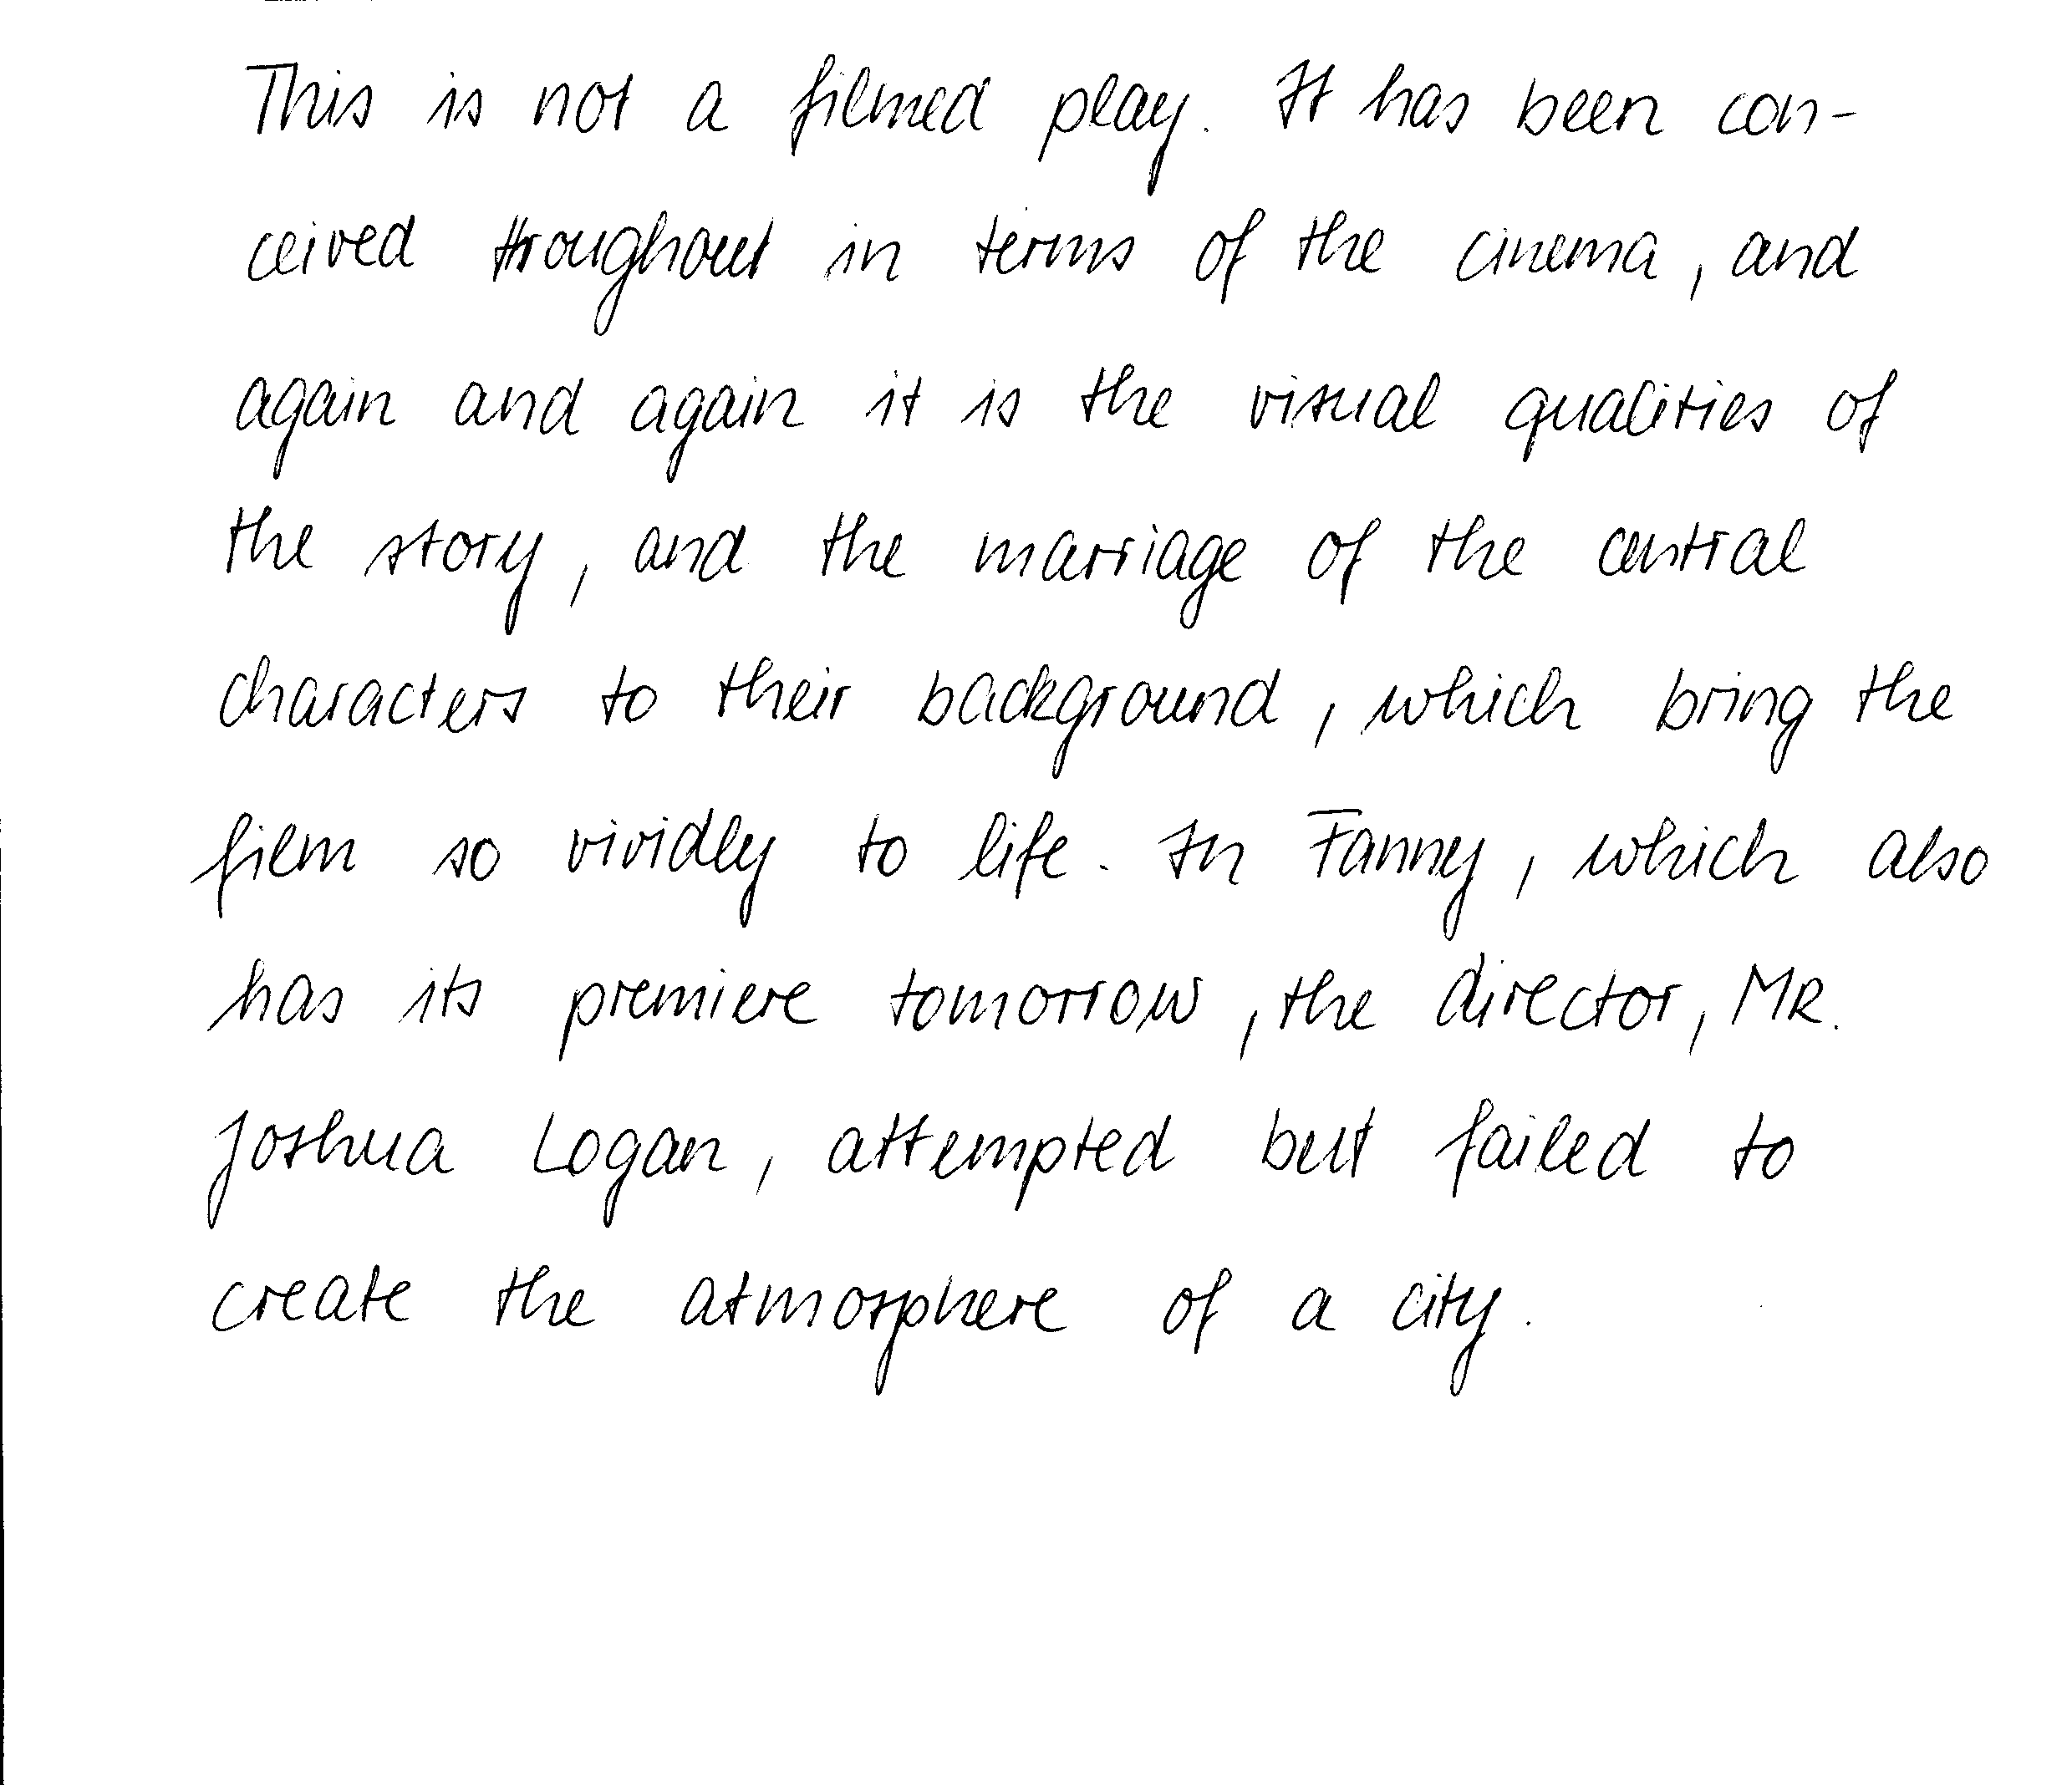 This is not a filmed play. It has been con-
ceived throughout in terms of the cinema, and
again and again it is the visual qualities of
the story, and the marriage of the central
characters to their background, which bring the
film so vividly to life. In Fanny, which also
has its premiere tomorrow, the director, MR.
Joshua Logan, attempted but failed to
create the atmosphere of a city.